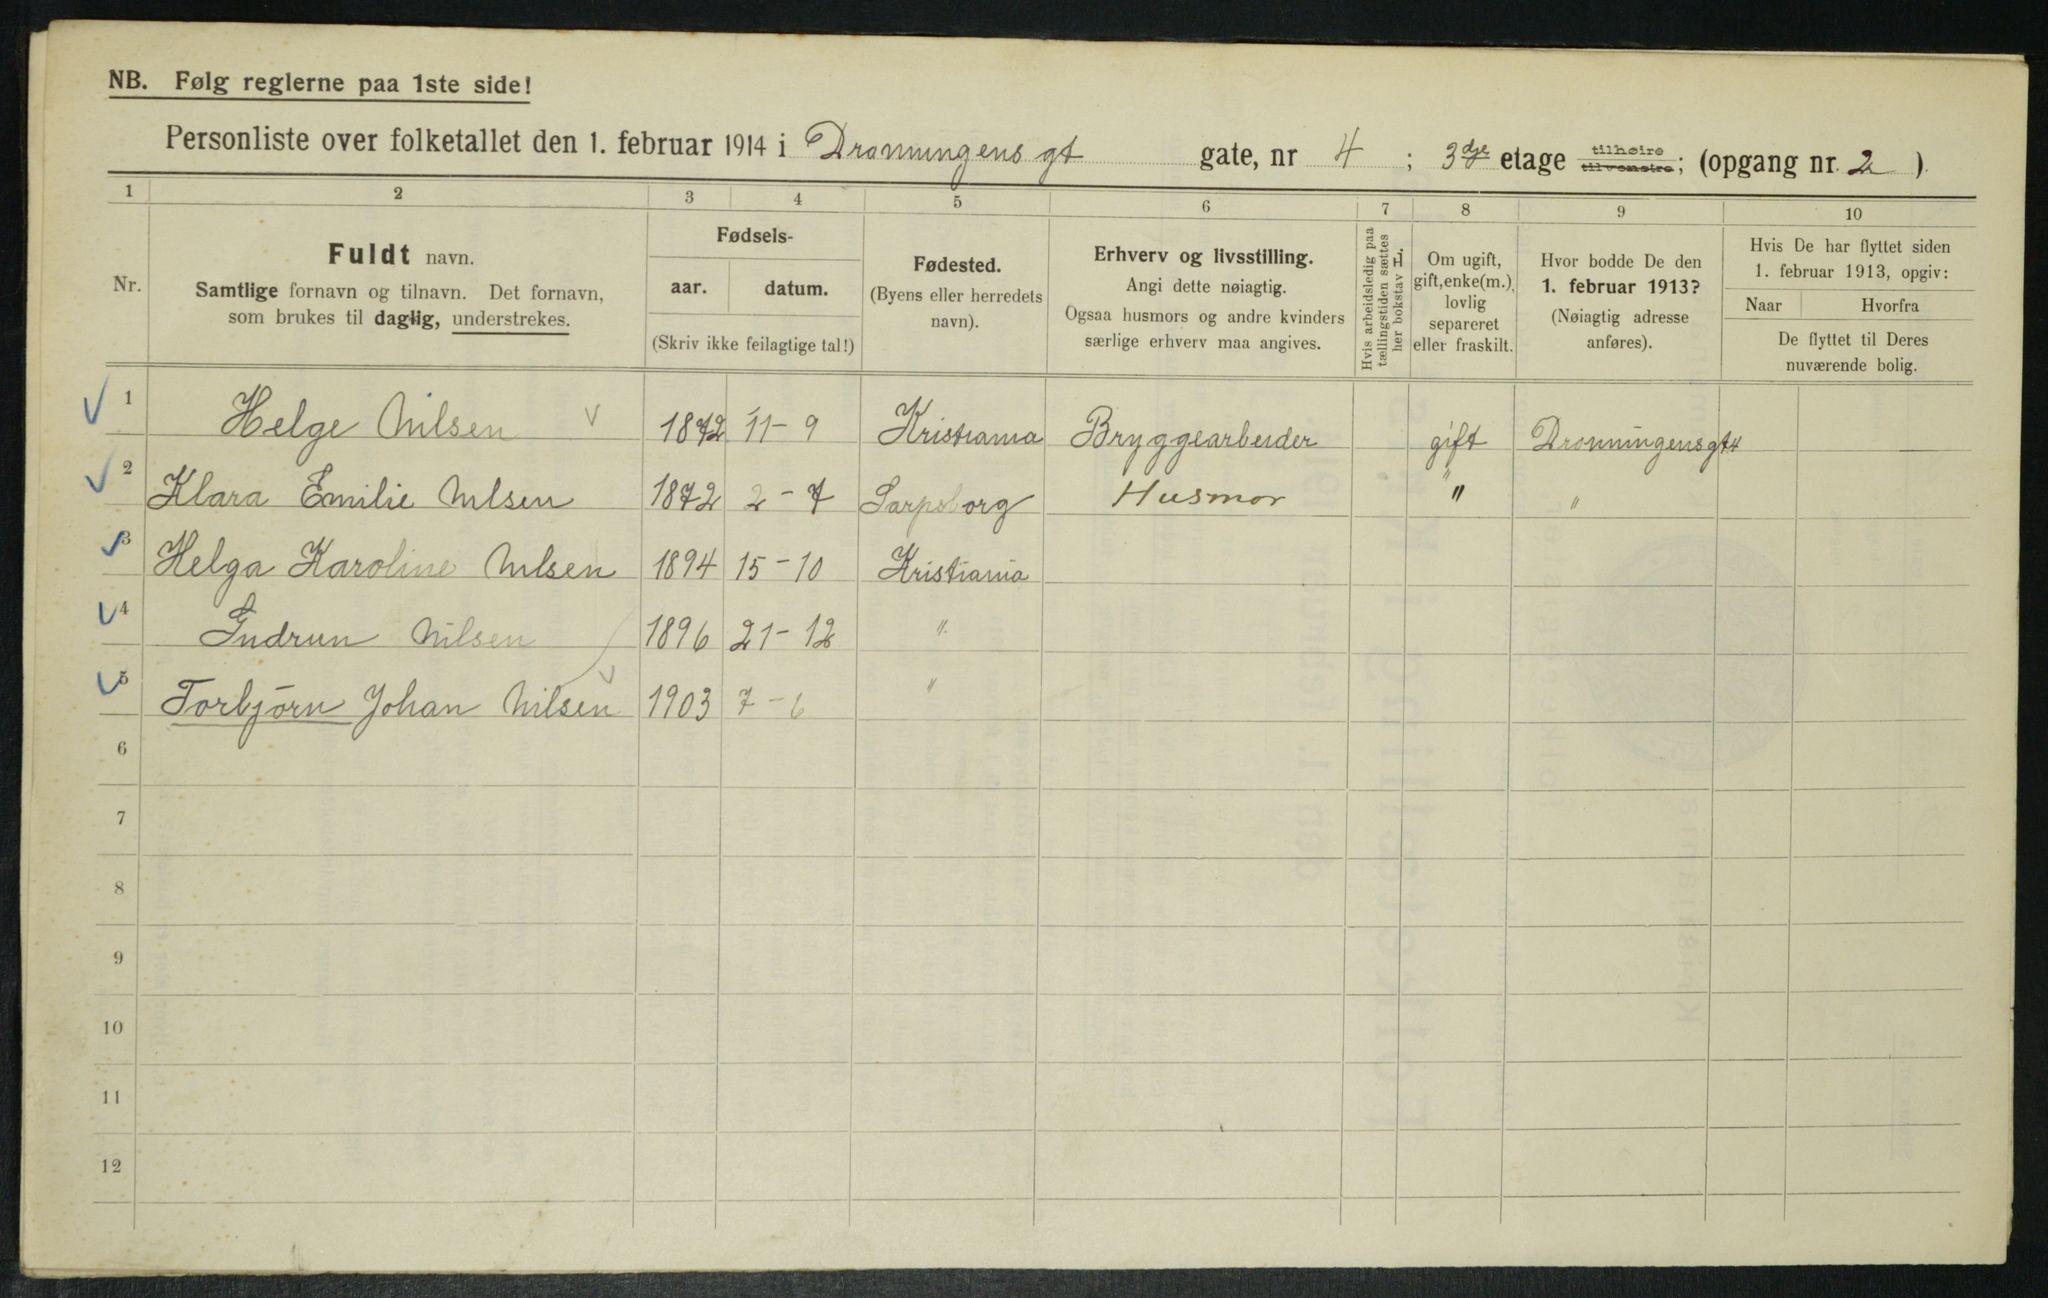 NB. Følg reglerne paa 1ste side!
Personliste over folketallet den 1. februar 1914 i Dronningens gt gate, nr 4 ; 3dje etage tilhøire tilvenstre; (opgang nr. 2 ).
1 2 3 4 5 6 7 8 9 10
Nr.
Fuldt navn.
Samtlige fornavn og tilnavn. Det fornavn,
som brukes til daglig, understrekes.
Fødsels-
aar. datum.
(Skriv ikke feilagtige tal!)
Fødested.
(Byens eller herredets
navn).
Erhverv og livsstilling.
Angi dette nøiagtig.
Ogsaa husmors og andre kvinders
særlige erhverv maa angives.
Hvis arbeidsledig paa
tællingstiden sættes
her bokstav L.
Om ugift,
gift, enke(m.),
lovlig
separeret
eller fraskilt.
Hvor bodde De den
1. februar 1913?
(Nøiagtig adresse
anføres).
Hvis De har flyttet siden
1. februar 1913, opgiv:
Naar Hvorfra
De flyttet til Deres
nuværende bolig.
1 Helge Nilsen 1872 11-9 Kristiania Bryggearbeider gift Dronningensgt 4
2 Klara Emilie Nilsen 1872 2-7 Sarpsborg Husmor " "
3 Helga Karoline Nilsen 1894 15-10 Kristiania
4 Gudrun Nilsen 1896 21-12 "
5 Torbjörn Johan Nilsen 1903 7-6 "
6
7
8
9
10
11
12